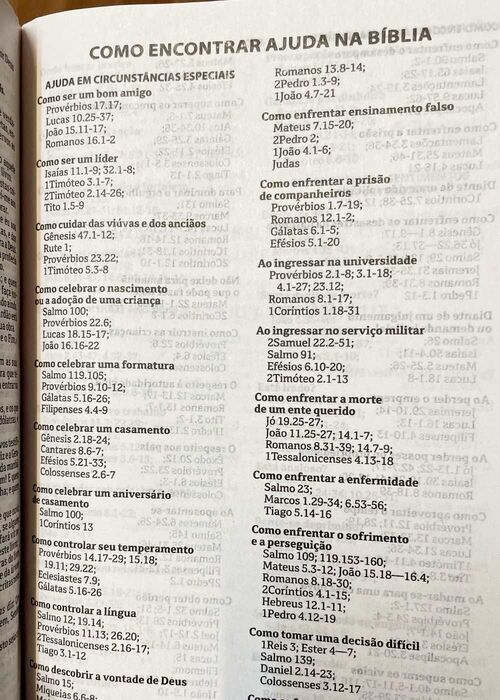 COMO ENCONTRAR AJUDA NA BÍBLIA
AJUDA EM CIRCUNSTÂNCIAS ESPECIAIS
Como ser um bom amigo
Provérbios 17.17;
Lucas 10.25-37;
João 15.11-17;
Romanos 16.1-2
Como ser um líder
Isaías 11.1-9; 32.1-8;
1Timóteo 3.1-7;
2Timóteo 2.14-26;
Tito 1.5-9
Como cuidar das viúvas e dos anciãos
Gênesis 47.1-12;
Rute 1;
Provérbios 23.22;
1Timóteo 5.3-8
Como celebrar o nascimento
ou a adoção de uma criança
Salmo 100;
Provérbios 22.6;
Lucas 18.15-17;
João 16.16-22
Como celebrar uma formatura
Salmo 119.105;
Provérbios 9.10-12;
Gálatas 5.16-26;
Filipenses 4.4-9
Como celebrar um casamento
Gênesis 2.18-24;
Cantares 8.6-7;
Efésios 5.21-33;
Colossenses 2.6-7
Como celebrar um aniversário
de casamento
Salmo 100;
1Coríntios 13
Como controlar seu temperamento
Provérbios 14.17-29; 15.18;
19.11; 29.22;
Eclesiastes 7.9;
Gálatas 5.16-26
Como controlar a língua
Salmo 12; 19.14;
Provérbios 11.13; 26.20;
2Tessalonicenses 2.16-17;
Tiago 3.1-12
Como descobrir a vontade de Deus
Salmo 15;
Miqueias 6.6-8;
Romanos 13.8-14;
2Pedro 1.3-9;
1João 4.7-21
Como enfrentar ensinamento falso
Mateus 7.15-20;
2Pedro 2;
1João 4.1-6;
Judas
Como enfrentar a prisão
de companheiros
Provérbios 1.7-19;
Romanos 12.1-2;
Gálatas 6.1-5;
Efésios 5.1-20
Ao ingressar na universidade
Provérbios 2.1-8; 3.1-18;
4.1-27; 23.12;
Romanos 8.1-17;
1Coríntios 1.18-31
Ao ingressar no serviço militar
2Samuel 22.2-51;
Salmo 91;
Efésios 6.10-20;
2Timóteo 2.1-13
Como enfrentar a morte
de um ente querido
Jó 19.25-27;
João 11.25-27; 14.1-7;
Romanos 8.31-39; 14.7-9;
1Tessalonicenses 4.13-18
Como enfrentar a enfermidade
Salmo 23;
Marcos 1.29-34; 6.53-56;
Tiago 5.14-16
Como enfrentar o sofrimento
e a perseguição
Salmo 109; 119.153-160;
Mateus 5.3-12; João 15.18—16.4;
Romanos 8.18-30;
2Coríntios 4.1-15;
Hebreus 12.1-11;
1Pedro 4.12-19
Como tomar uma decisão difícil
1Reis 3; Ester 4—7;
Salmo 139;
Daniel 2.14-23;
Colossenses 3.12-17